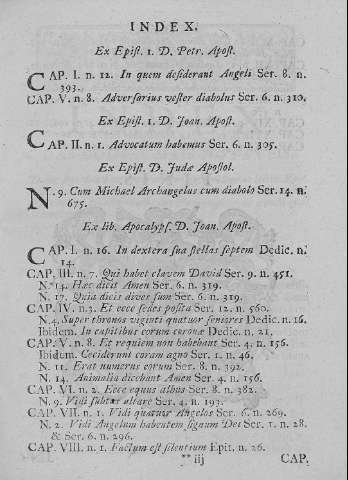 INDEX.
Ex Epist. 1. D. Petr. Apost.
CAP. I. n. 12. In quem desiderant Angeli Ser. 8. n.
393.
CAP. V. n. 8. Adversarius vester diabolus Ser. 6. n. 310.
Ex Epist. 1. D. Joan. Apost.
CAP. II. n. 1. Advocatum habemus Ser. 6. n. 305.
Ex Epist. D. Judæ Apostol.
N. 9. Cum Michael Archangelus cum diabolo Ser. 14. n.
675.
Ex lib. Apocalyps. D. Joan. Apost.
CAP. I. n. 16. In dextera sua stellas septem Dedic. n.
14.
CAP. III. n. 7. Qui habet clavem David Ser. 9. n. 451.
N. 14. Hæc dicit Amen Ser. 6. n. 319.
N. 17. Quia dicis dives sum Ser. 6. n. 319.
CAP. IV. n. 3. Et ecce sedes posita Ser. 12. n. 560.
N. 4. Super thronos viginti quatuor seniores Dedic. n. 16.
Ibidem. In capitibus eorum coronæ Dedic. n. 21.
CAP. V. n. 8. Et requiem non habebant Ser. 4. n. 156.
Ibidem. Ceciderunt coram agno Ser. 1. n. 46,
N. 11. Erat numerus eorum Ser. 8. n. 392.
N. 14. Animalia dicebant Amen Ser. 4. n. 156.
CAP. VI. n. 2. Ecce equus albus Ser. 8. n. 382.
N. 9. Vidi subtus altare Ser. 4. n. 193.
CAP. VII. n. 1. Vidi quatuor Angelos Ser. 6. n. 269.
N. 2. Vidi Angelum habentem signum Dei Ser. 1. n. 28.
& Ser. 6. n. 296.
CAP. VIII. n. 1. Factum est silentium Epit. n. 26.
** iij CAP.